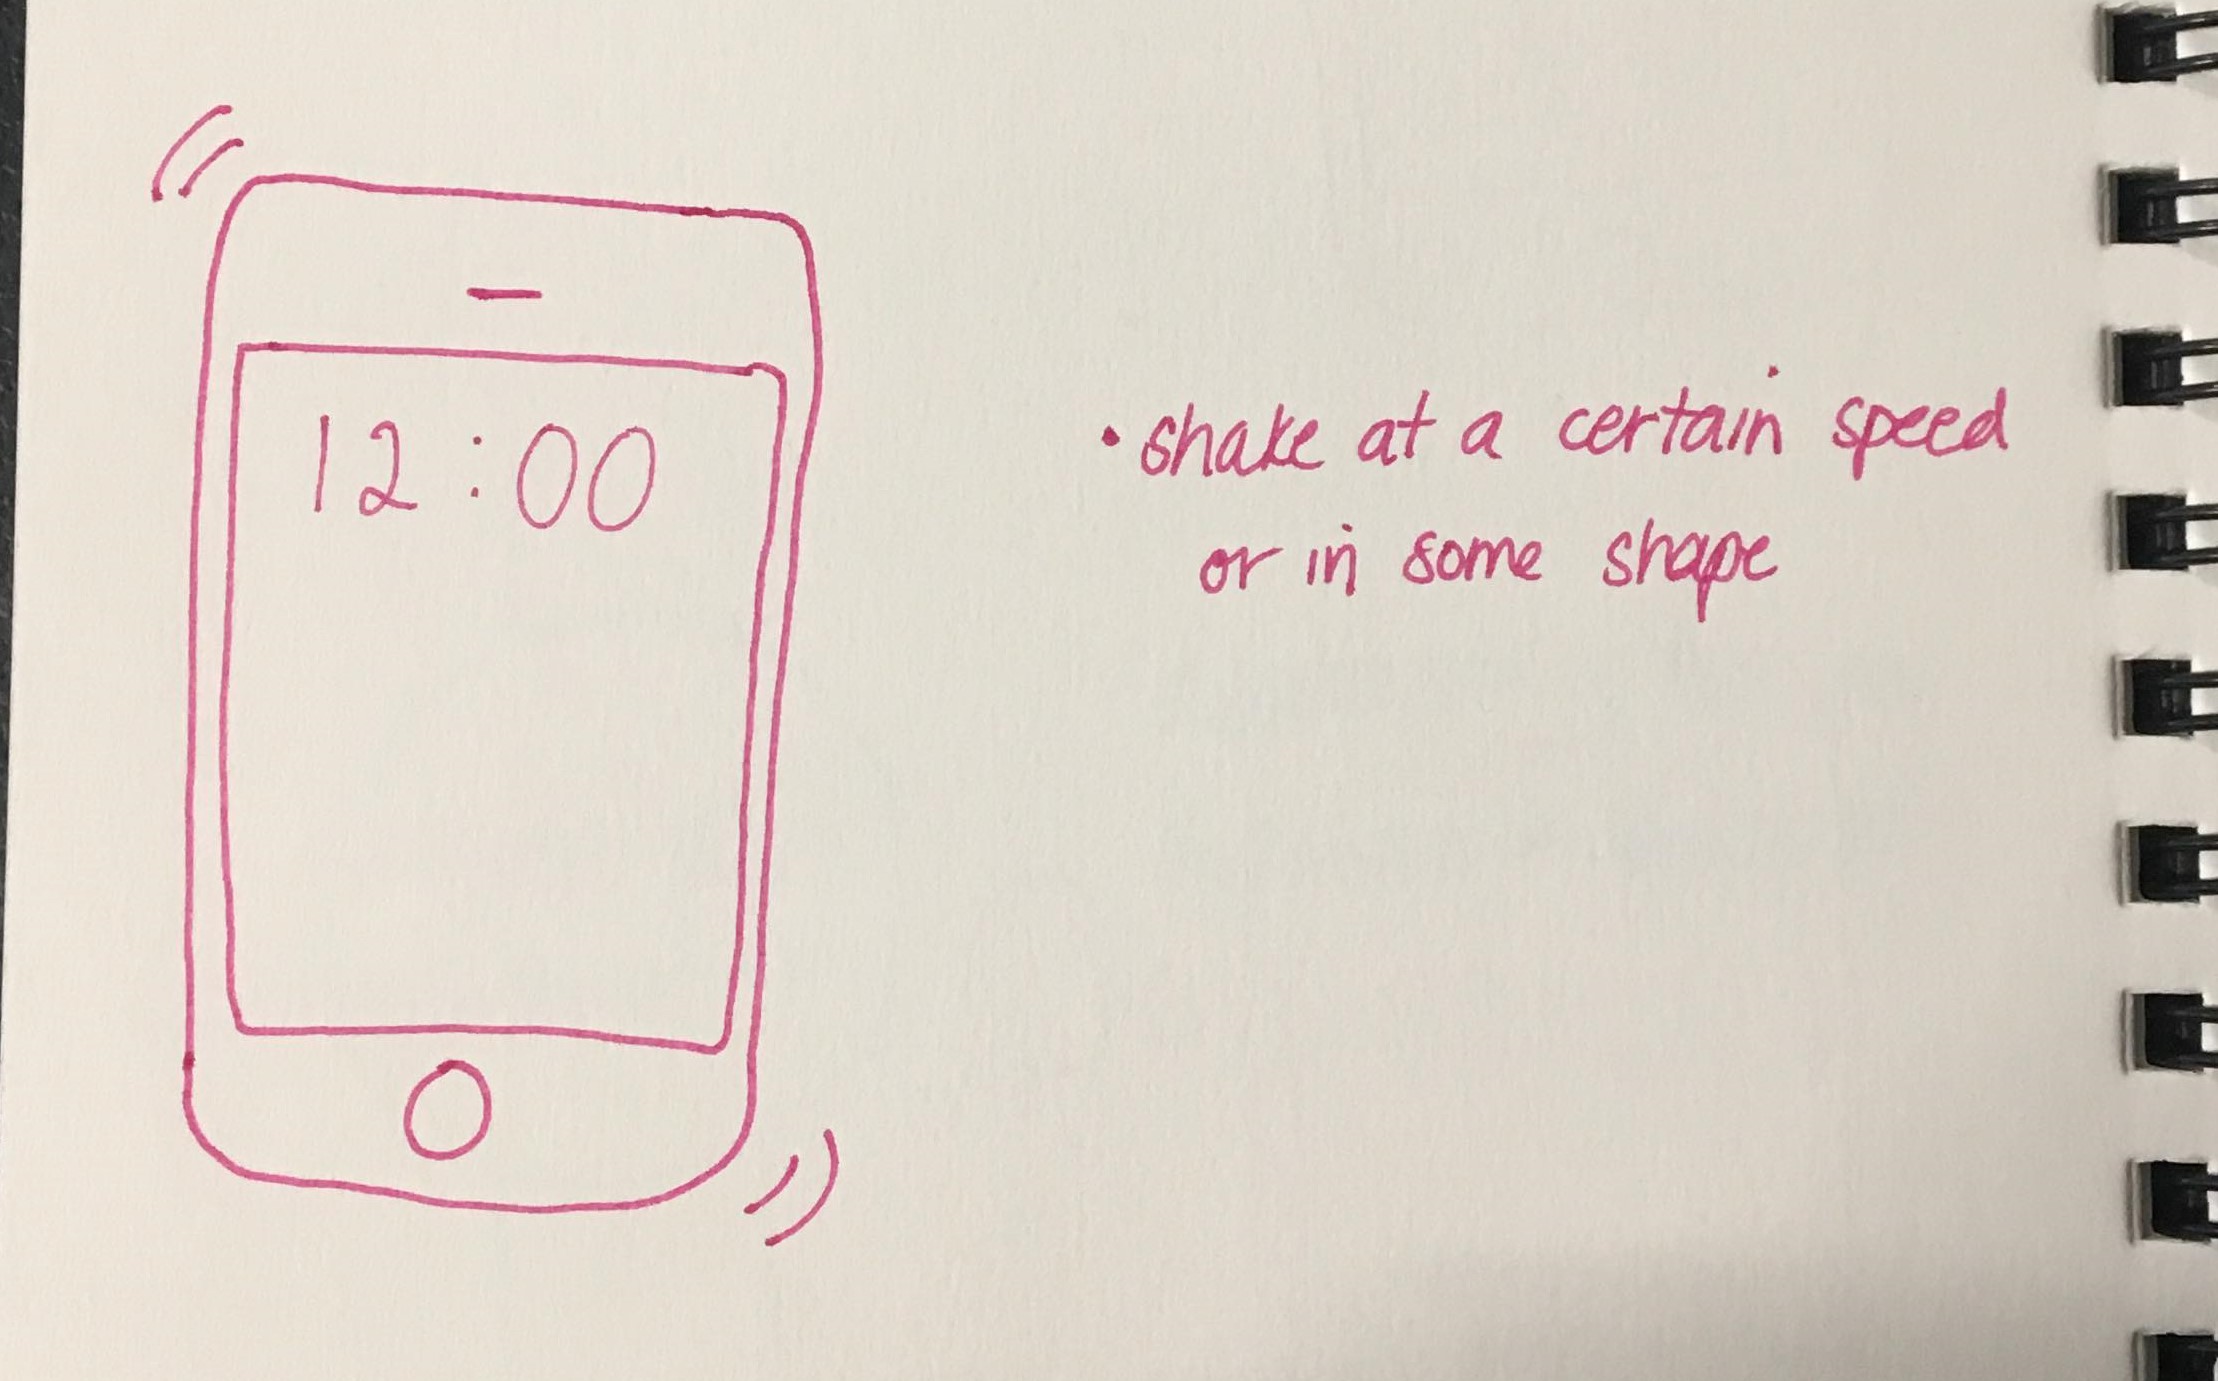 12:00
• shake at a certain speed
or in some shape